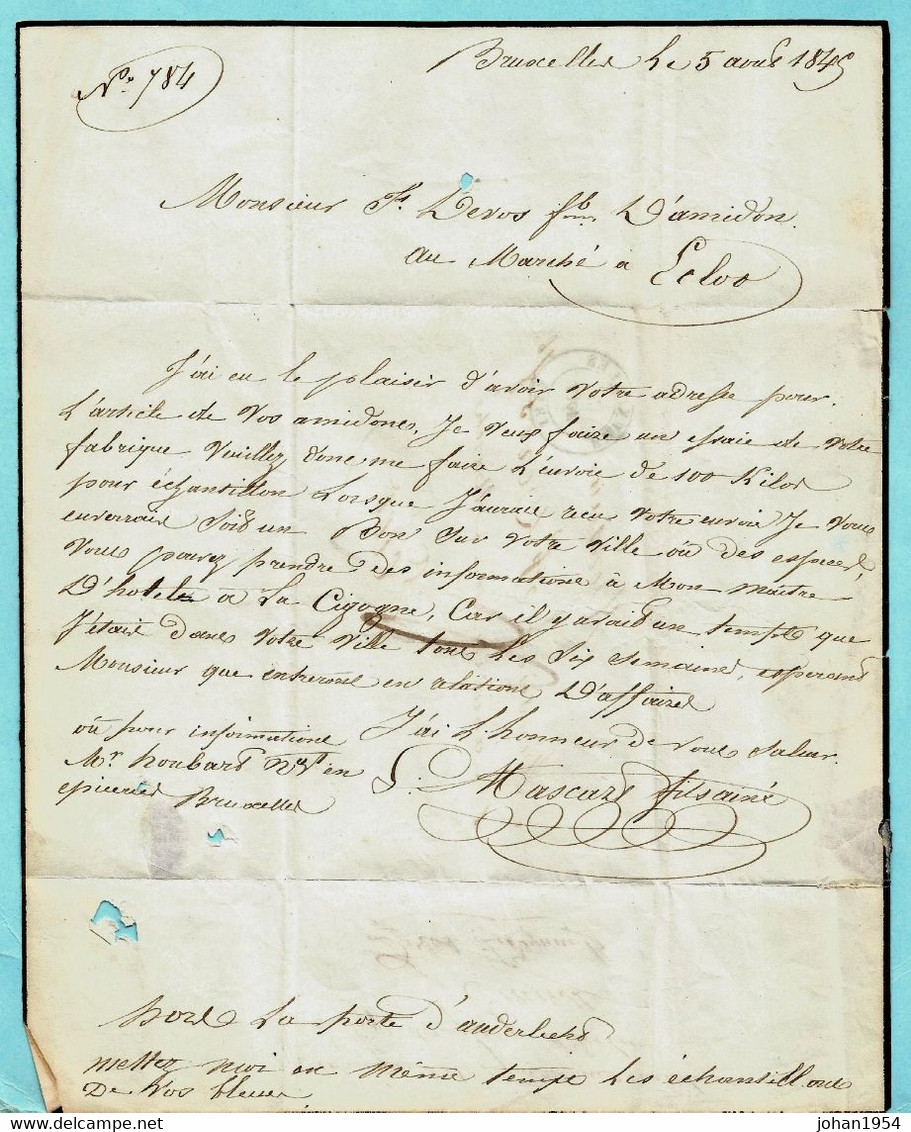 Bruxelles Le 5 aout 1845
No. 784
Monsieur Fs. Devos fbm. D'amidon
au Marché à Ecloo
J'ai eu le plaisir d'avoir votre adresse pour
L'article de vos amidons, Je veux faire un essaie de votre
fabrique Veuillez donc me faire L'envoie de 100 Kilos
pour échantillon Lorsque J'aurai recu votre envoie Je vous
enverrais soit un Bon sur votre ville où des especes,
Vous pouvez prendre des informations à Mon maitre
D'hotel à La Cigogne, Car il y avait un temps que
J'étais dans votre ville tous les six semaines, esperant
Monsieur que entrerons en relations D'affaires
J'ai L'honneur de vous saluer
où pour informations
Mr. houbart Nest en
epiceries Bruxelles
S. Mascart fils ainé
hors La porte d'anderlecht
mettez moi en même temps les échantillons
De vos bleues
johan1954